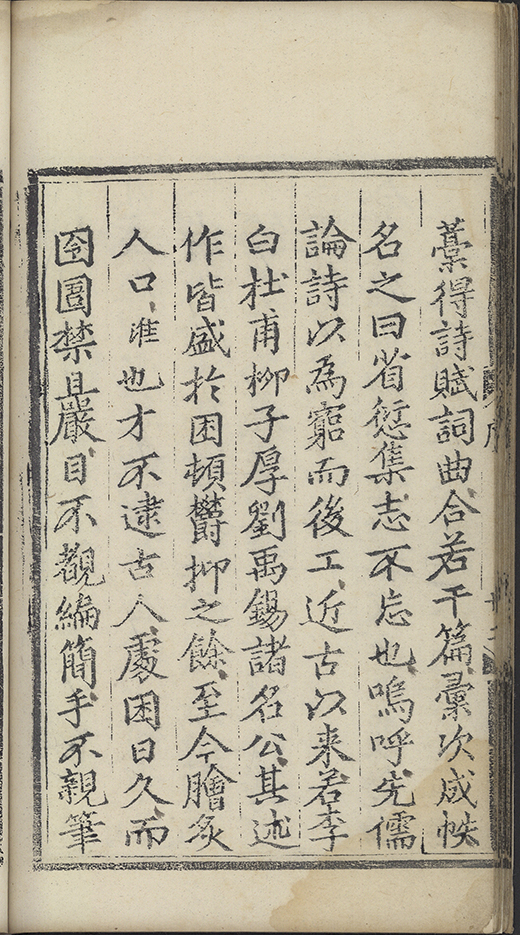 藁得詩賦詞曲合若干篇彙次成帙
名之曰省愆集志不忘也嗚呼先儒
論詩以為窮而後工近古以来若李
白杜甫柳子厚劉禹錫諸名公其述
作皆盛於困頓欝抑之餘至今膾炙
人口淮也才不逮古人處困日久而
囹圄禁且嚴目不覩編簡手不親筆